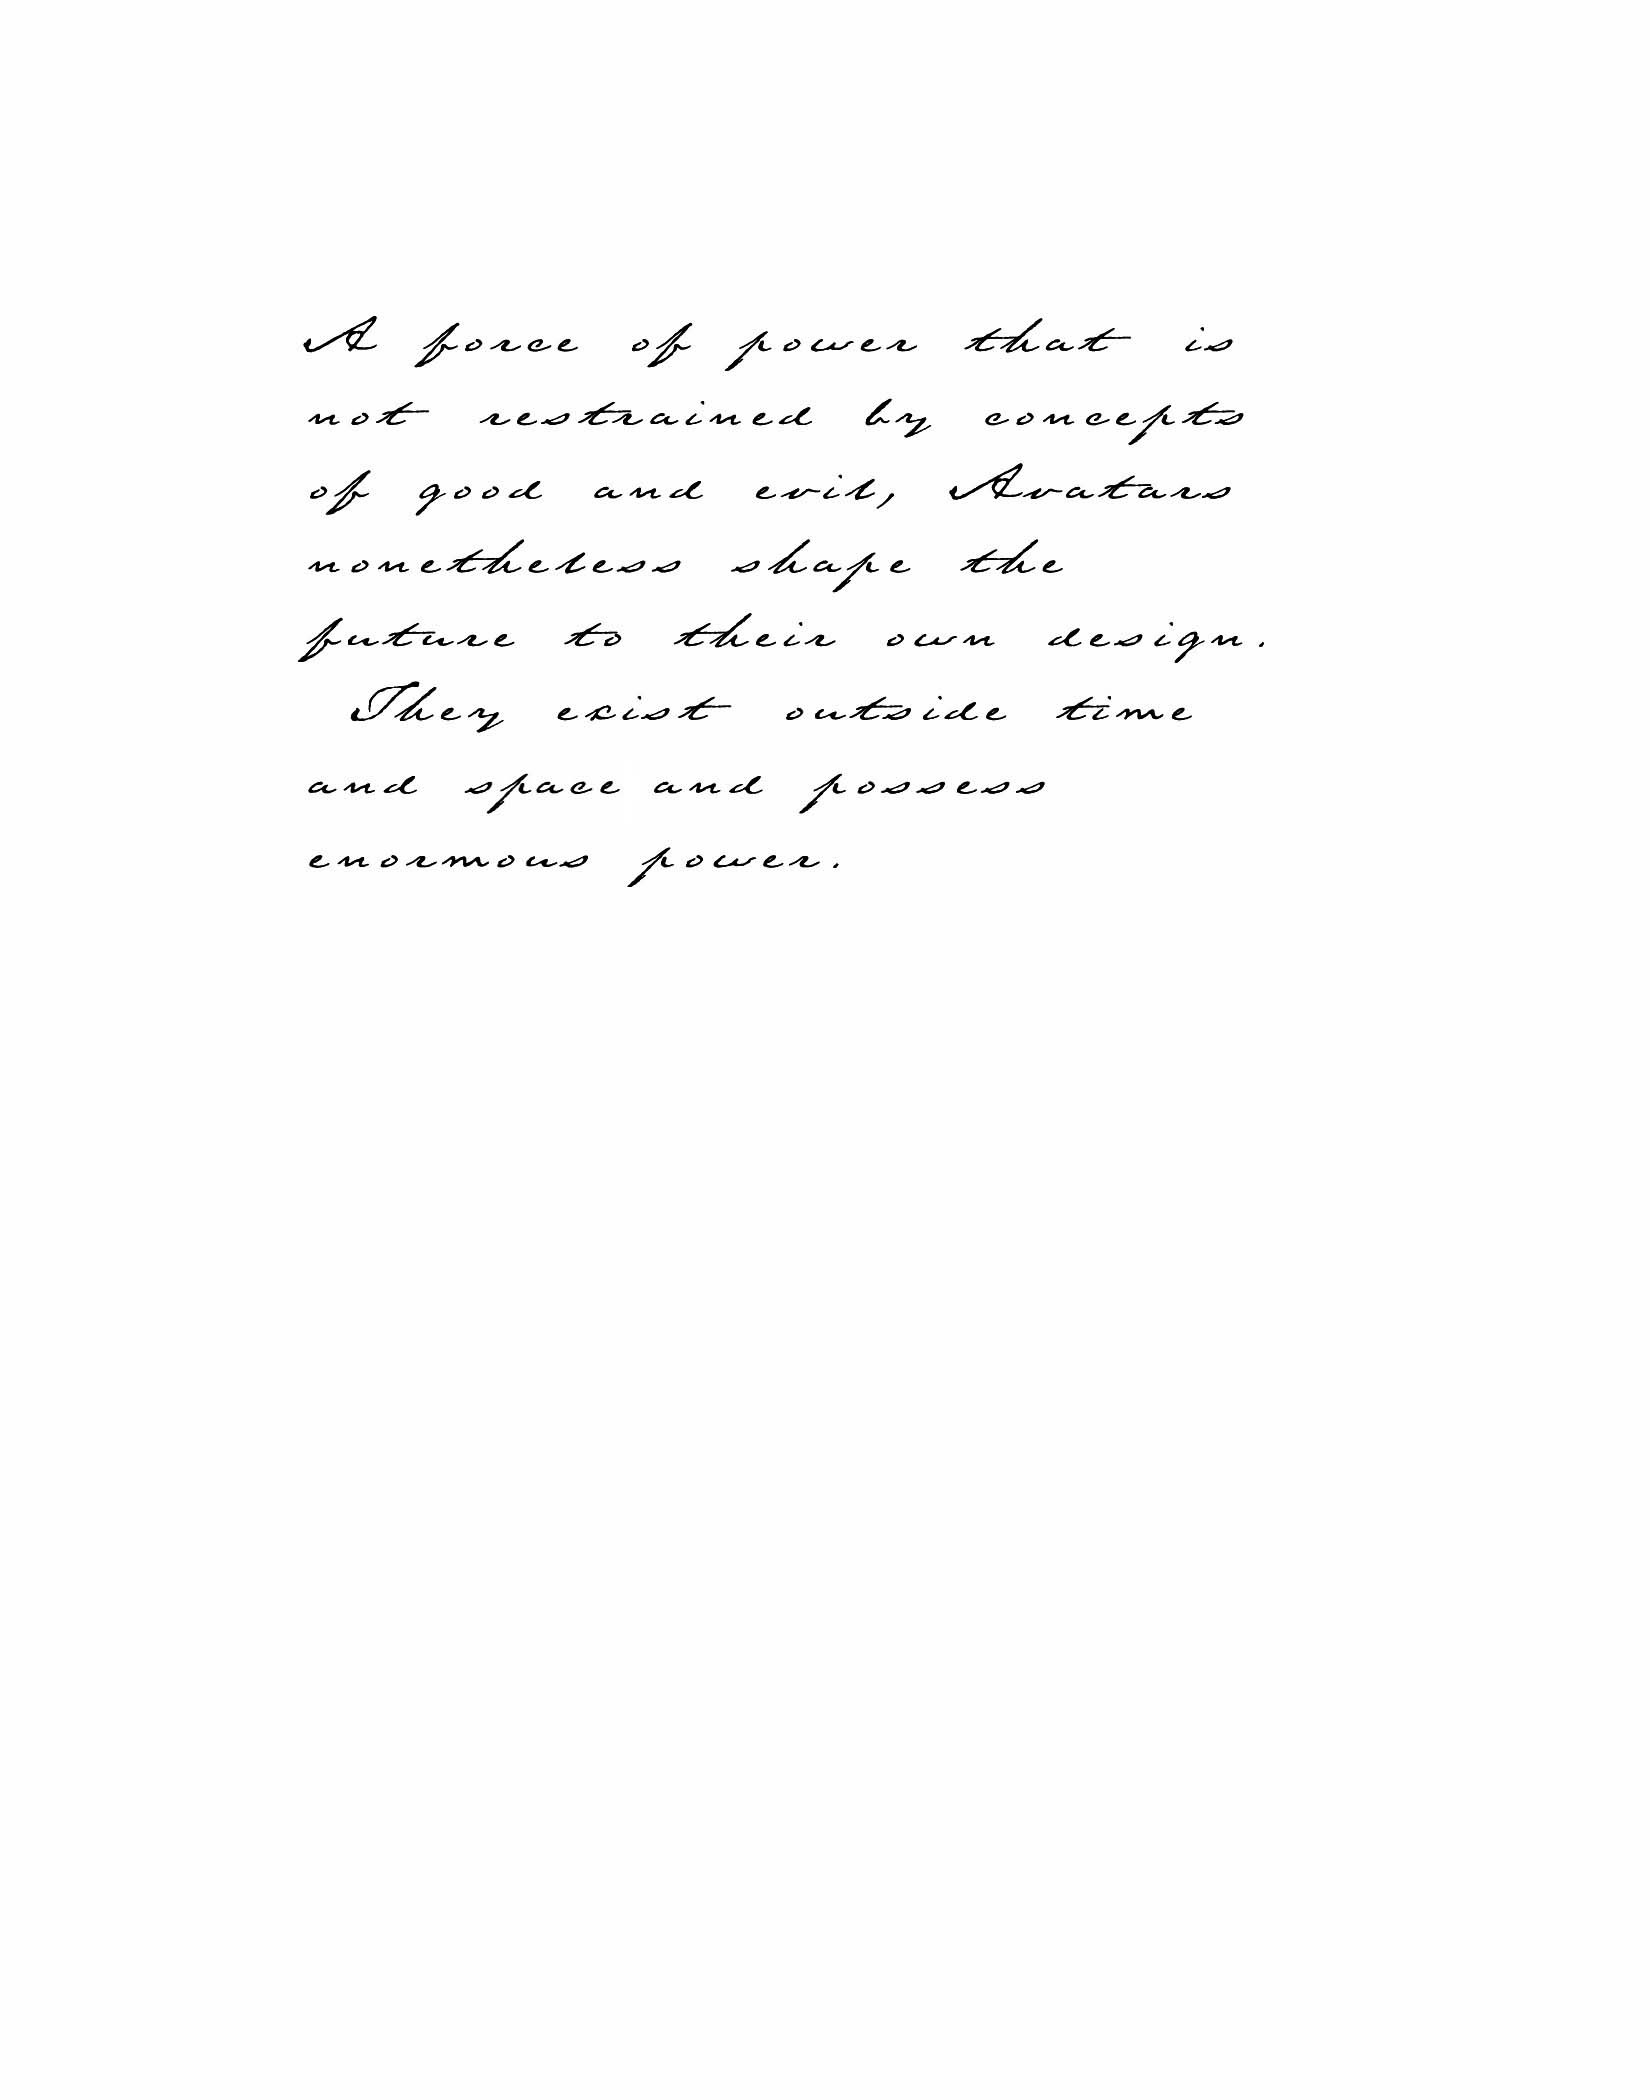 A force of power that is
not restrained by concepts
of good and evil, Avatars
nonetheless shape the
future to their own design.
They exist outside time
and space and possess
enormous power.